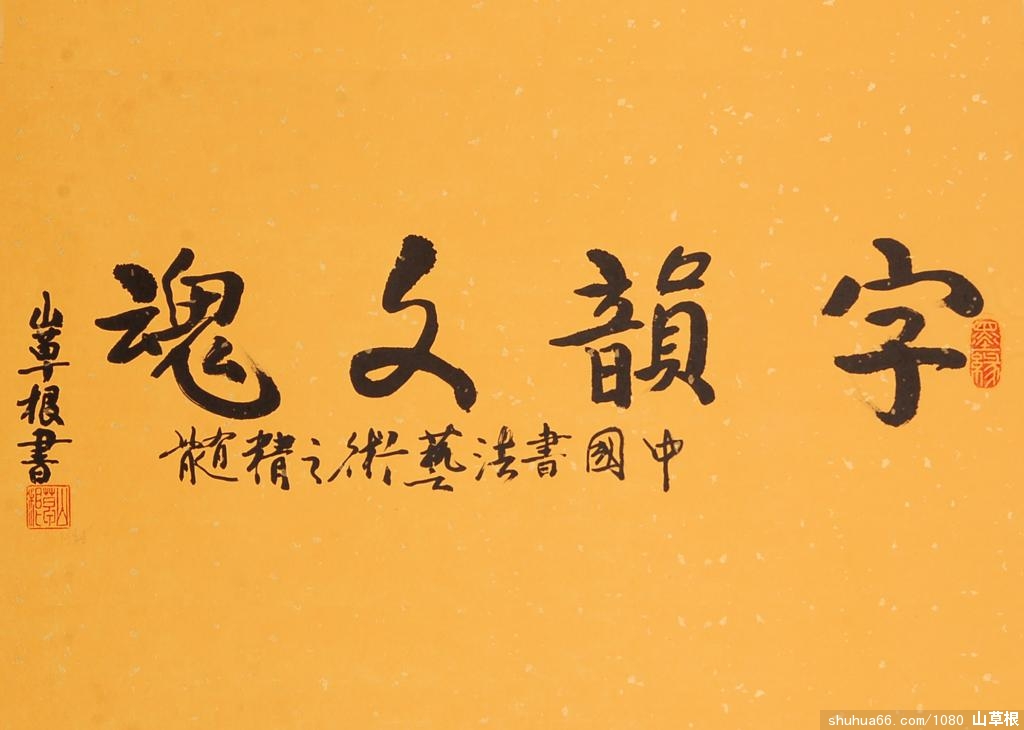 字韻文魂
中國書法藝術之精髓
山草根書
墨緣
山草根
shuhua66.com/1080 山草根